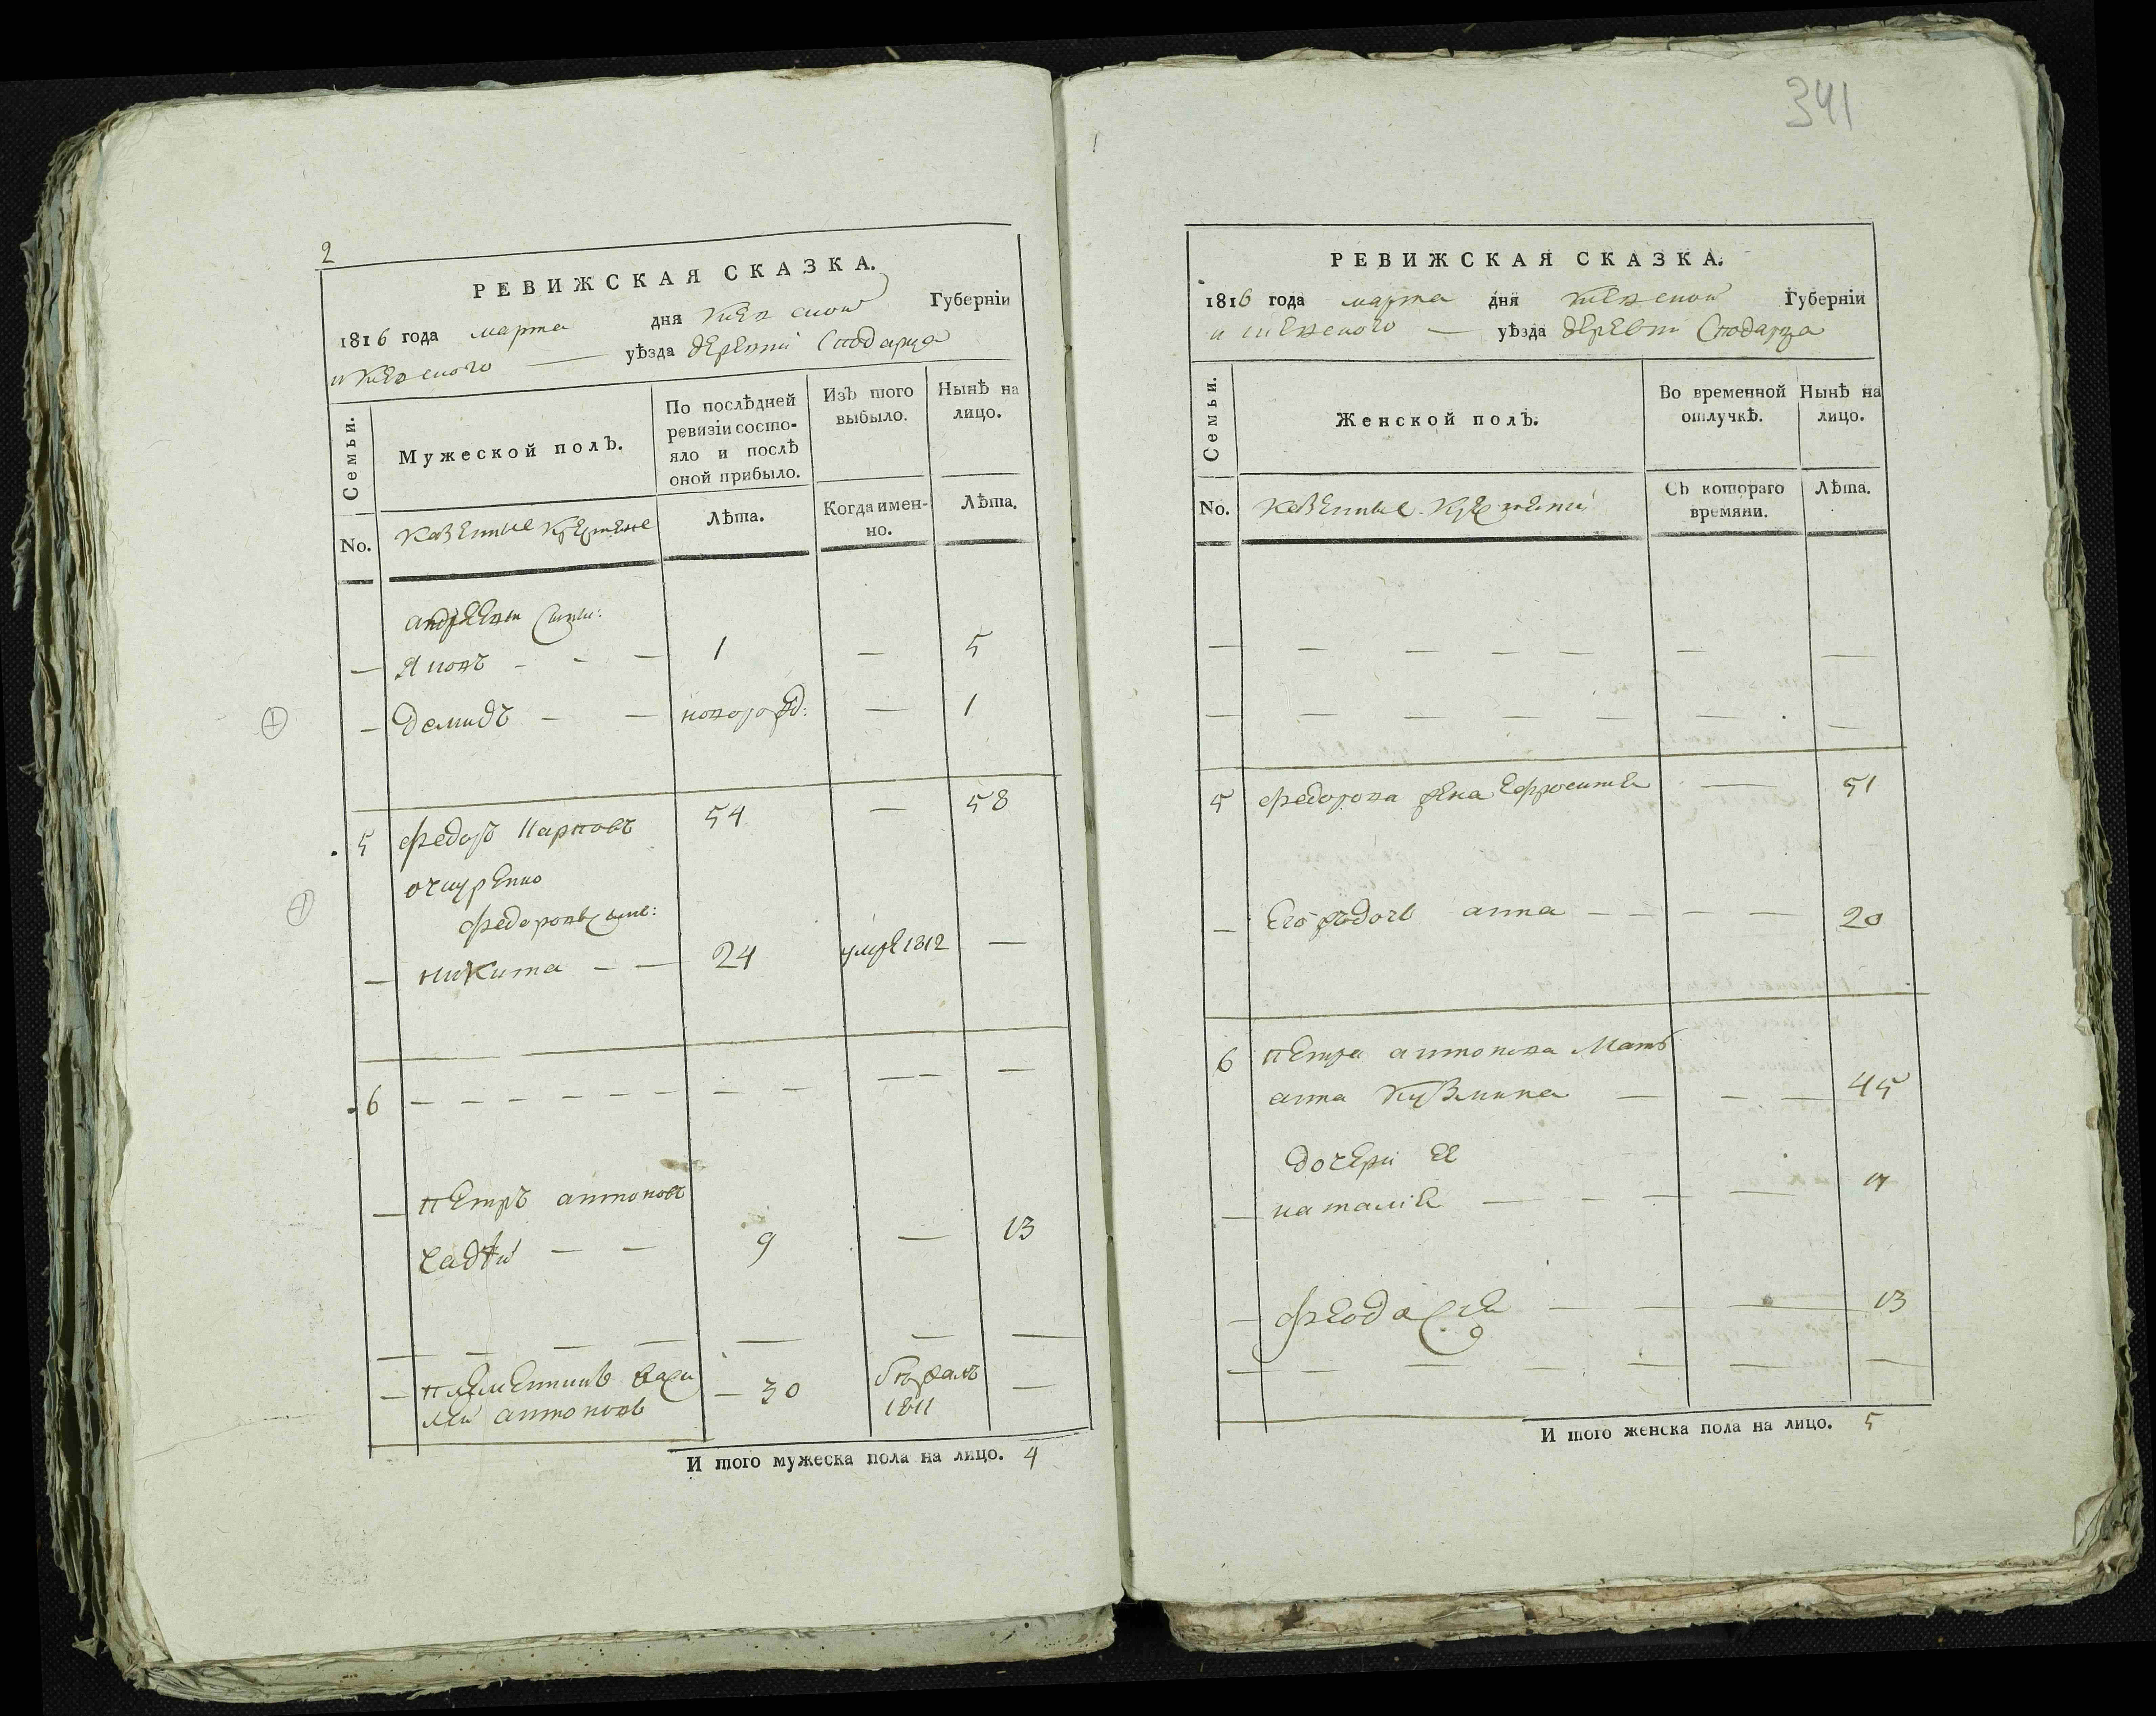 2
РЕВИЖСКАЯ СКАЗКА.
1816 года марта дня Киевской Губерніи
и Киевского уѣзда деревни
Семьи.
Мужеской полЪ.
По послѣдней ревизіи состо-
яло и послѣ
оной прибыло.
ИзЪ того
выбыло.
Нынѣ на
лицо.
No.
Казенные
Лѣта.
Когда имен-
но.
Лѣта.
андреевы сыны:
— Яковъ - - — 1 — 5
— Демидъ — — новорожд: — 1
5 Федоръ Карповъ 54 — 58
Федоровъ сынъ:
— Никита — — 24 умре 1812 —
6 — — — — — — — — — — —
— Петръ антоновъ
— — 9 — 13
— — — — — — —
— племенникъ васи
лей антоновъ — 30 бежалъ 1811 —
И того мужеска пола на лицо. 4
341
РЕВИЖСКАЯ СКАЗКА.
1816 года марта дня Киевской Губерніи
и Киевского — уѣзда деревни
Семьи.
Женской полЪ.
Во временной
отлучкѣ.
Нынѣ на
лицо.
No.
Казенные
СЪ котораго
времяни.
Лѣта.
— — — — — — —
— — — — — — —
5 Федорова жена Ефросинья — 51
— Его ждочь анна — — — — 20
6 Петра антонова Мать
анна Кузмина — — — 45
дочери ее
— наталія — — — — 17
— Феодосія — — — 13
— — — — — — —
И того женска пола на лицо. 5